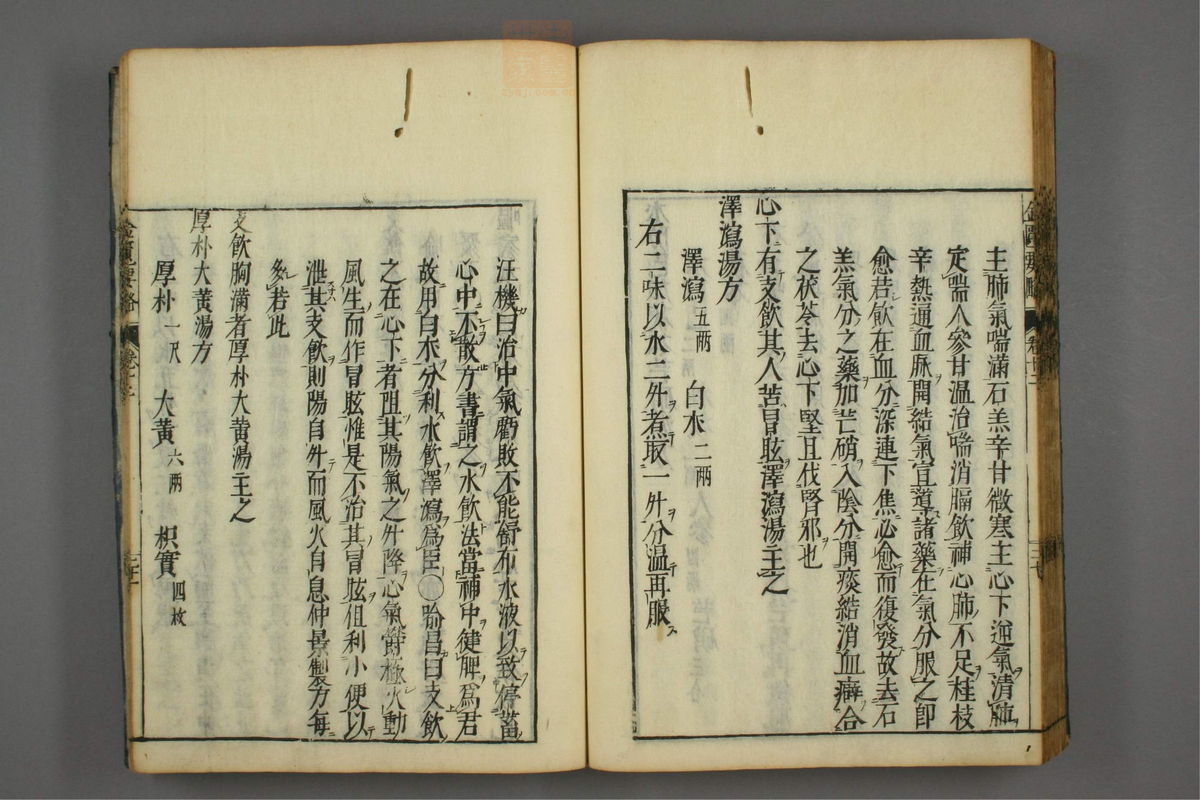 主肺氣喘滿石羔辛甘微寒主心下逆氣清肺
定喘人參甘温治喘消膈飲補心肺不足桂枝
辛熱通血脉開結氣宣導諸藥在氣分服之即
愈昔飲在血分深連下焦必愈而復發故去石
羔氣分之藥加芒硝入陰分開痰結消血癖合
之茯苓去心下堅且伐腎邪也
心下有支飲其人苦冒眩澤瀉湯主之
澤瀉湯方
澤瀉五兩 白朮二兩
右二味以水二升煮取一升分温再服
汪機曰治中氣虧敗不能舒布水液以致停蓄
心中不散方書謂之水飲法當補中健脾為君
故用白朮分利水飲澤瀉為臣〇喻昌曰支飲
之在心下者阻其陽氣之升降心氣鬱極火動
風生而作冒眩惟是不治其冒眩但利小便以
泄其支飲則陽自升而風火自息仲景製方每
多若此
支飲胸滿者厚朴大黃湯主之
厚朴大黃湯方
厚朴一尺 大黃六兩 枳實四枚